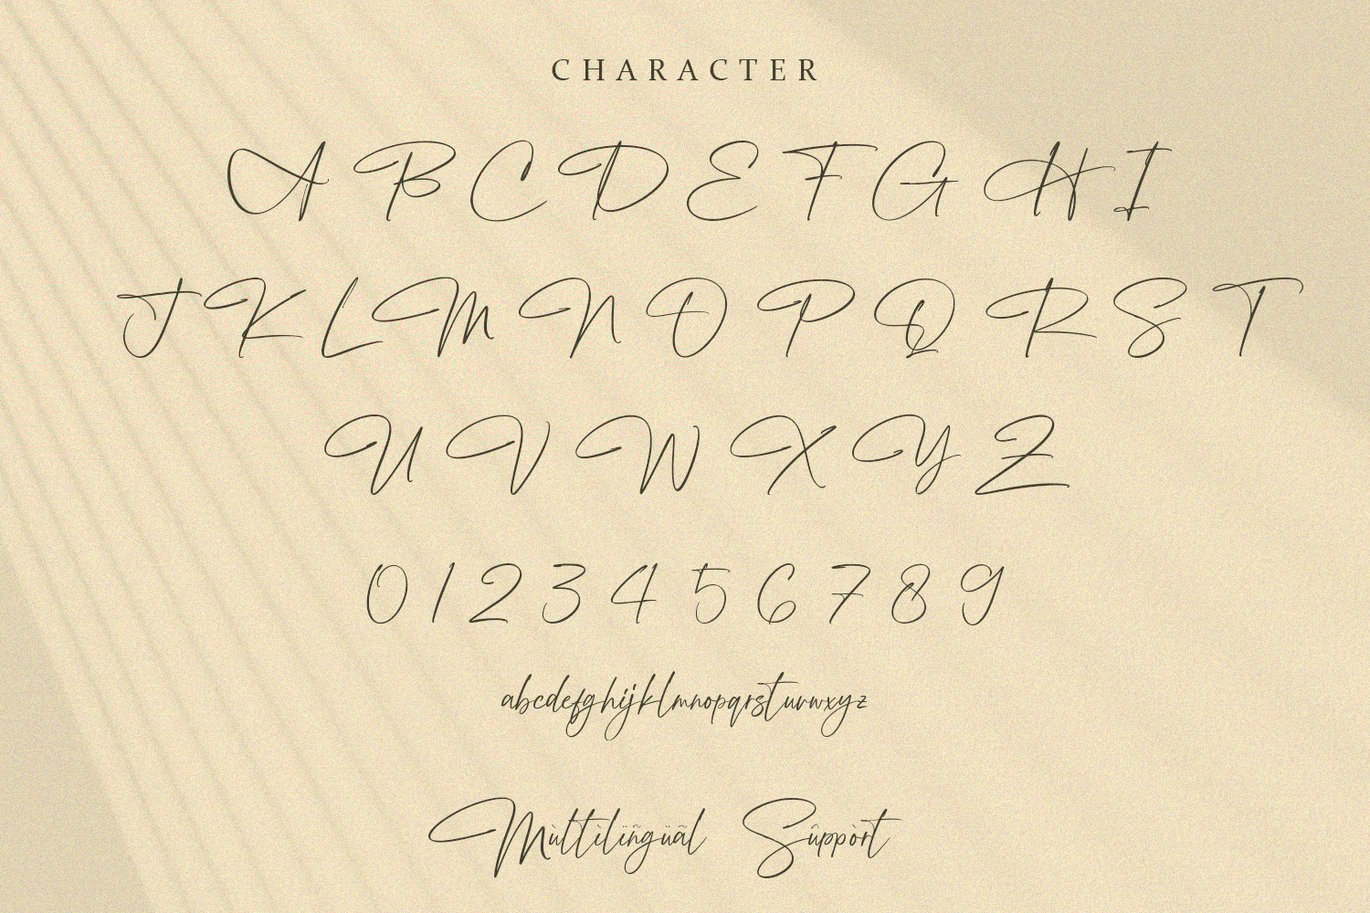 CHARACTER
A B C D E F G H I
J K L M N O P Q R S T
U V W X Y Z
0 1 2 3 4 5 6 7 8 9
abcdefghijklmnopqrstuvwxyz
Mùltìlïñgüãl Sûppòrt